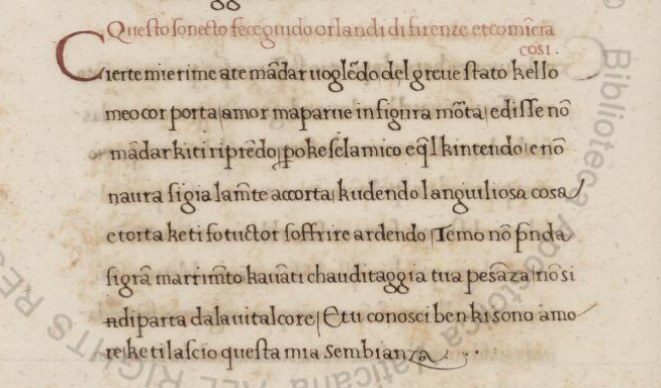 Questo sonecto fece guido orlandi di firenze et comīcia
cosi .
Cierte mie rime a te mādar uoglēdo del greue stato kello
meo cor porta / amor maparue in figura mōta / e disse nō
mādar kiti riprēdo / ꝑoke selamico e q̄l kintendo / e nō
naura si gia lam̄te accorta / kudendo langiuliosa cosa /
e torta ke ti fo tuctor soffrire ardendo / Temo nō p̄nda
si grā marrim̄to kauāti chaudit aggia tua pesāza / nō si
ndiparta dala uital core / Et tu conosci ben ki sono amo
re / ke ti lascio questa mia sembianza
Biblioteca Apostolica Vaticana
ALL RIGHTS RES